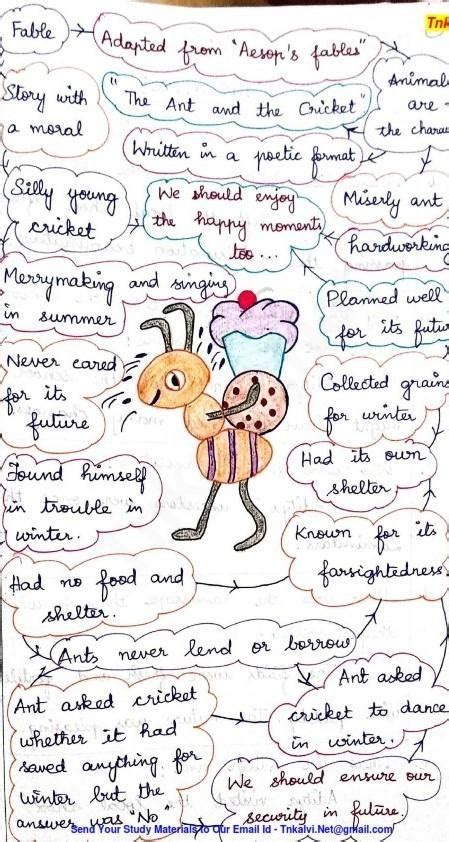 Tnk
Fable
Adapted from "Aesop's fables"
Animals
are
the charac
Story with
a moral
"The Ant and the Cricket"
Written in a poetic format
Silly young
cricket
We should enjoy
the happy moments
too...
Miserly ant
hardworking
Merrymaking and singing
in summer
Planned well
for its futu
Never cared
for its
future
Collected grains
for winter
Had its own
shelter
Found himself
in trouble in
winter.
Known for its
farsightedness
Had no food and
shelter.
Ants never lend or borrow
Ant asked
cricket to dance
in winter.
Ant asked cricket
whether it had
saved anything for
winter but the
answer was "No"
We should ensure our
security in future.
Send Your Study Materials to Our Email Id - Tnkalvi.Net@gmail.com